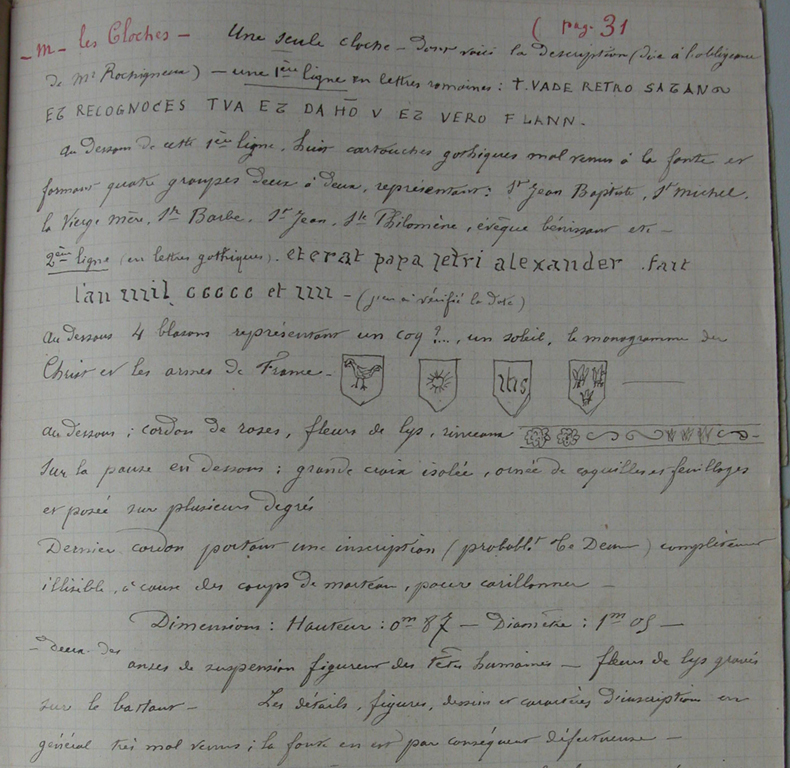 ( pag. 31
- m - les Cloches - Une seule cloche - dont voici la description (dûe à l'obligeance
de Mr Rochigneux) - une 1ère ligne en lettres romaines : †. VADE RETRO SATAN
ET RECOGNOCES TVA ET DA HŌ V ET VERO FLANN.
Au dessous de cette 1ère ligne, huit cartouches gothiques mal venus à la fonte et
formant quatre groupes deux à deux, représentant : St Jean Baptiste, St Michel,
la Vierge Mère, Ste Barbe, St Jean, Ste Philomène, évêque bénissant etc -
2ème ligne (en lettres gothiques). et erat papa petri alexander . fait
l'an mil ccccc et iiii - (j'en ai vérifié la date)
Au dessous 4 blasons représentant un coq ?..., un soleil, le monogramme du
Christ et les armes de France -
ihs
au dessous ; cordon de roses, fleurs de lys, rinceaux
Sur la panse en dessous : grande croix isolée, ornée de coquilles et feuillages
et posée sur plusieurs degrés
Dernier cordon portant une inscription (probablt Te Deum) complètement
illisible, à cause des coups de marteau, pour carillonner -
Dimensions : Hauteur : 0m 87 - Diamètre : 1m 05 -
- deux des
anses de suspension figurent des têtes humaines - fleurs de lys gravés
sur le battant - Les détails, figures, dessins et caractères d'inscription en
général très mal venus ; la fonte en est par conséquent défectueuse -